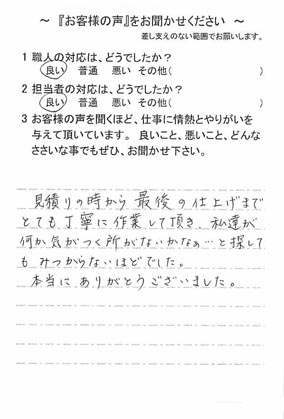 ～『お客様の声』をお聞かせください～
差し支えのない範囲でお願いします。
1 職人の対応は、どうでしたか？
良い 普通 悪い その他( )
2 担当者の対応は、どうでしたか？
良い 普通 悪い その他( )
3 お客様の声を聞くほど、仕事に情熱とやりがいを
与えて頂いています。 良いこと、悪いこと、どんな
ささいな事でもぜひ、お聞かせ下さい。
見積りの時から 最後の仕上げまで
とても丁寧に作業して頂き、私達が
何か気がつく所がないかなぁ…と探して
もみつからないほどでした。
本当にありがとうございました。